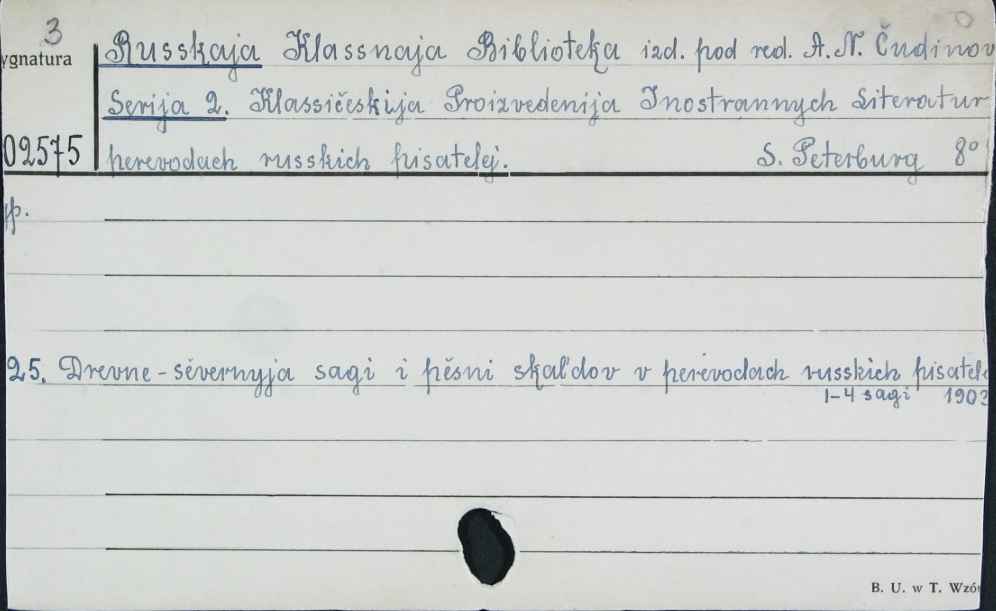 3
ygnatura
Russkaja Klassnaja Biblioteka izd. pod red. A. N. Čudinov
Serija 2. Klassičeskija Proizvedenija Inostrannych Literatur
02575
perevodach russkich pisatelej. S. Peterburg 8°
25. Drevne-sěvernyja sagi i pěsni skal'dov v perevodach russkich pisatele
1-4 sagi 1903
B. U. w T. Wzó